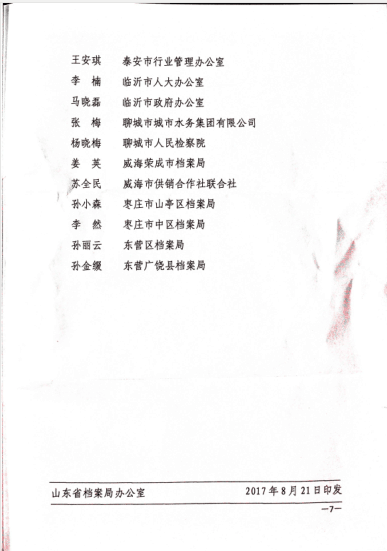 王安琪 泰安市行业管理办公室
李 楠 临沂市人大办公室
马晓磊 临沂市政府办公室
张 梅 聊城市城市水务集团有限公司
杨晓梅 聊城市人民检察院
姜 英 威海荣成市档案局
苏全民 威海市供销合作社联合社
孙小森 枣庄市山亭区档案局
李 然 枣庄市中区档案局
孙丽云 东营区档案局
孙金缀 东营广饶县档案局
山东省档案局办公室 2017年8月21日印发
—7—